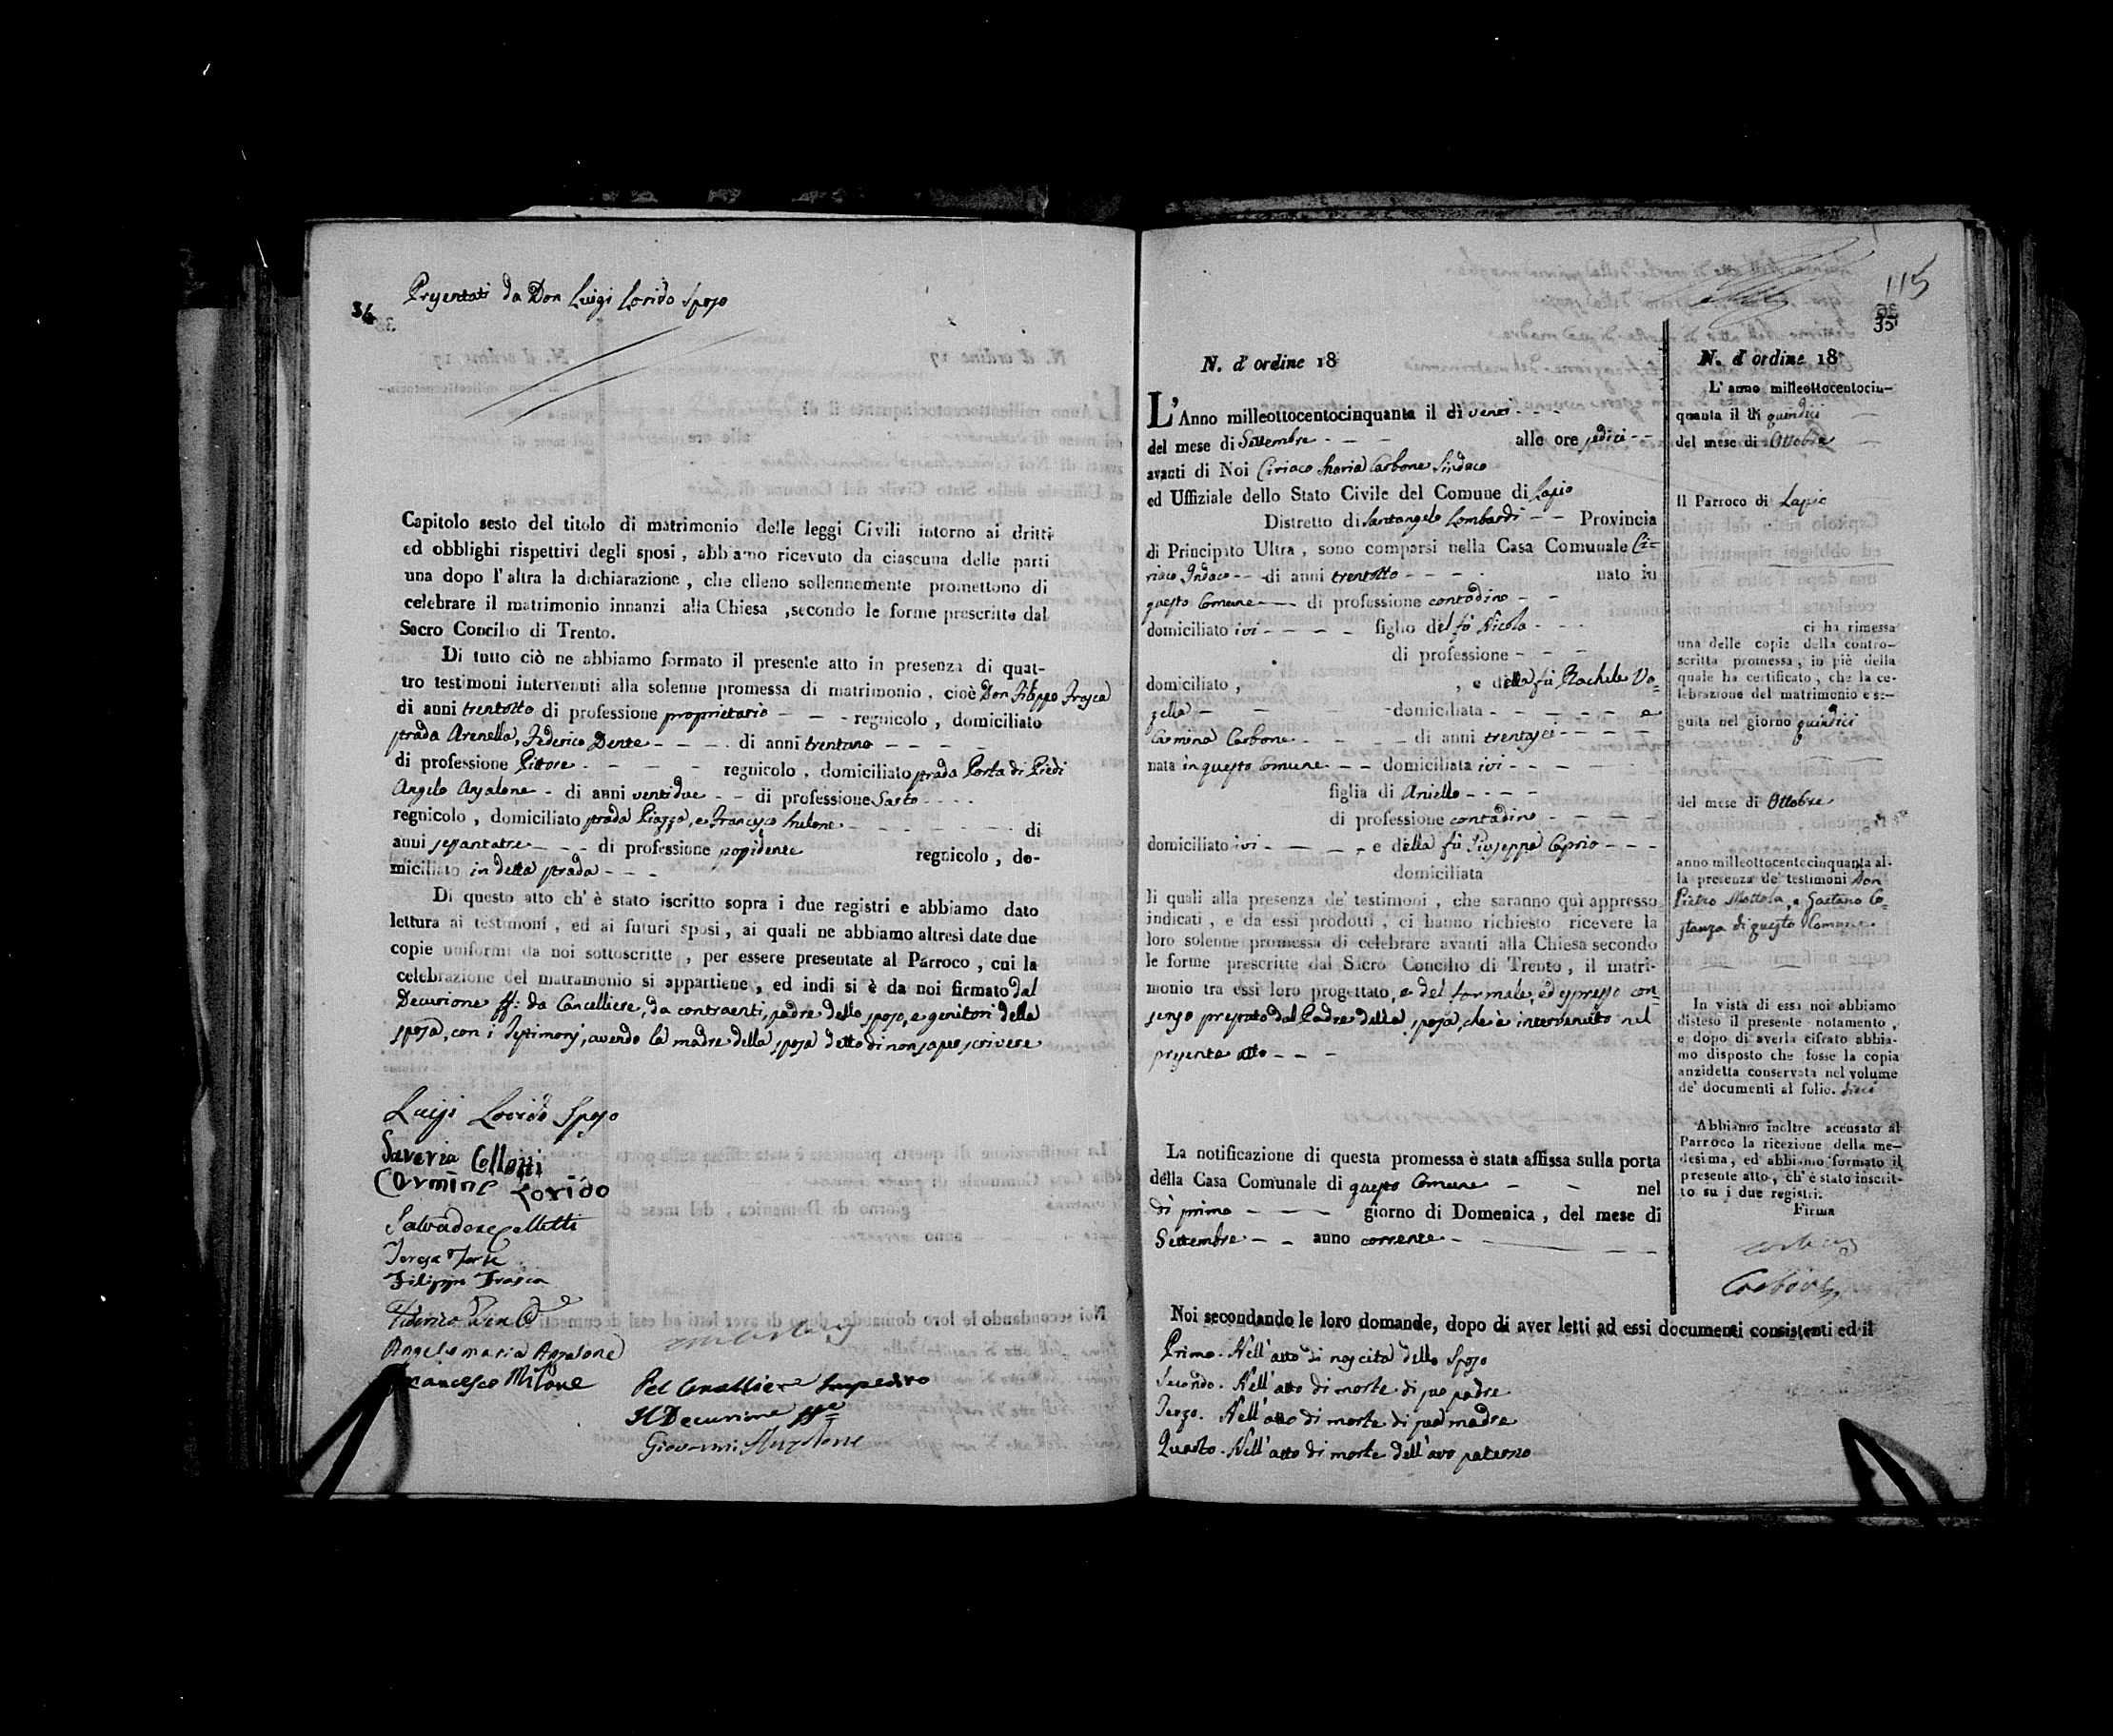 34
Presentati da Don Luigi Lorido Sposo
Capitolo sesto del titolo di matrimonio delle leggi Civili intorno ai dritti
ed obblighi rispettivi degli sposi, abbiamo ricevuto da ciascuna delle parti
una dopo l'altra la dichiarazione, che elleno sollennemente promettono di
celebrare il matrimonio innanzi alla Chiesa ,secondo le forme prescritte dal
Sacro Concilio di Trento.
Di tutto ciò ne abbiamo formato il presente atto in presenza di quat-
tro testimoni intervenuti alla solenne promessa di matrimonio, cioè Don Filippo Frasca
di anni trentotto di professione proprietario - - - regnicolo, domiciliato
strada Arenella, Federico Dente - - - - di anni trentuno - - - -
di professione Pittore - - - - regnicolo, domiciliato strada Porta di Piedi
Angelo Anzalone - di anni ventidue - - di professione Sarto - - - -
regnicolo, domiciliato strada Piazza, e Francesco Milone - - - - - - di
anni sessantatre - - - di professione possidente regnicolo, do-
miciliato in detta strada - - -
Di questo atto ch'è stato iscritto sopra i due registri e abbiamo dato
lettura ai testimoni, ed ai futuri sposi, ai quali ne abbiamo altresì date due
copie uniformi da noi sottoscritte, per essere presentate al Parroco, cui la
celebrazione del matramonio si appartiene, ed indi si è da noi firmato dal
Decurione ff: da Cancelliere, da contraenti, padre dello sposo, e genitori della
sposa, con i Testimonj, avendo la madre della sposa detto di non saper scrivere
Luigi Lorido Sposo
Saveria Colletti
Carmine Lorido
Salvadore Colletti
Teresa Forte
Filippo Frasca
Federico Dente
Angelo maria Anzalone
Francesco Milone
Pel Cancelliere Impedito
Il Decurione ff
Giovanni
115
35
N. d' ordine 18
L'Anno milleottocentocinquanta il dì venti - - -
del mese di Settembre - - - alle ore sedici - -
avanti di Noi Ciriaco Maria Carbone Sindaco
ed Uffiziale dello Stato Civile del Comune di Lapio
Distretto di Santangelo Lombardi - - Provincia
di Principato Ultra, sono comparsi nella Casa Comunale Ci=
riaco Indaco - - di anni trentotto - - - - nato in
questo Comune - - di professione contadino - -
domiciliato ivi - - - - figlio del fù Nicola - - -
di professione - - -
domiciliato , , e della fù Rachele Vo=
zella - - - - domiciliata - - - - - e
Carmina Carbone - - - - di anni trentasei - - - -
nata in questo Comune - - domiciliata ivi - - -
figlia di Aniello - - - -
di professione contadino - - - - -
domiciliato ivi - - - - e della fù Giuseppa Caprio - - -
domiciliata
li quali alla presenza de' testimoni, che saranno quì appresso
indicati, e da essi prodotti, ci hanno richiesto ricevere la
loro solenne promessa di celebrare avanti alla Chiesa secondo
le forme prescritte dal Sacro Concilio di Trento, il matri-
monio tra essi loro progettato, e del formale, ed espresso con=
senso prestato dal Padre della sposa, che è intervenuto nel
presente atto - - -
La notificazione di questa promessa è stata affissa sulla porta
della Casa Comunale di questo Comune - - nel
dì primo - - - giorno di Domenica, del mese di
Settembre - - anno corrente - - -
Noi secondando le loro domande, dopo di aver letti ad essi documenti consistenti ed il
Primo. Nell'atto di nascita dello Sposo
Secondo. Nell'atto di morte di suo padre
Terzo. Nell'atto di morte di sua madre
Quarto. Nell'atto di morte dell'avo paterno
N. d' ordine 18
L'anno milleottocentocin-
quanta il dì quindici
del mese di Ottobre
Il Parroco di Lapio
ci ha rimessa
una delle copie della contro-
scritta promessa, in piè della
quale ha certificato, che la ce-
lebrazione del matrimonio e se-
guita nel giorno quindici
del mese di Ottobre
anno milleottocentocinquanta al-
la presenza de' testimoni Don
Pietro Mottola, e Gaetano Co=
stanza di questo Comune.
In vista di essa noi abbiamo
disteso il presente notamento,
e dopo di averla cifrato abbia-
mo disposto che fosse la copia
anzidetta conservata nel volume
de' documenti al folio. dieci
Abbiamo inoltre accusato al
Parroco la ricezione della me-
desima, ed abbiamo formato il
presente atto, ch'è stato inscrit-
to su i due registri.
Firma
Carbone